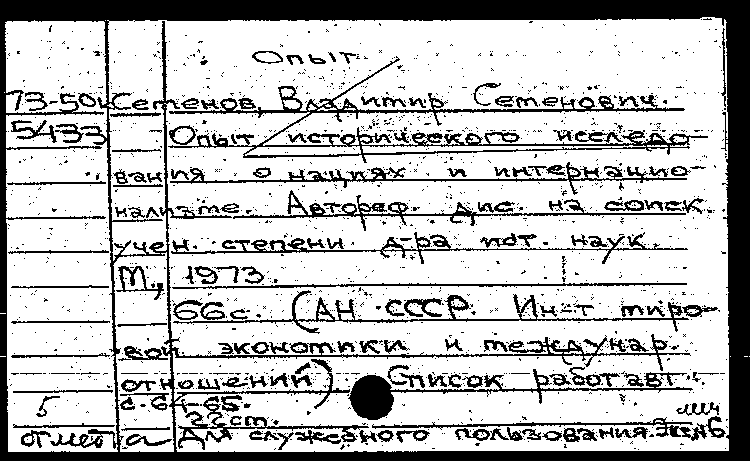 Опыт
73-50
Семенов, Владимир Семенович.
5433
Опыт исторического исследо-
вания о нациях и интернацио-
нализме. Автореф. дис. на соиск.
учен. степени д-ра ист. наук.
М., 1973.
66с. (АН СССР. Ин-т миро-
вой экономики и междунар.
отношений). Список работ авт.:
5 с. 64-65.
22см.
отметка Для служебного пользования. Экз.